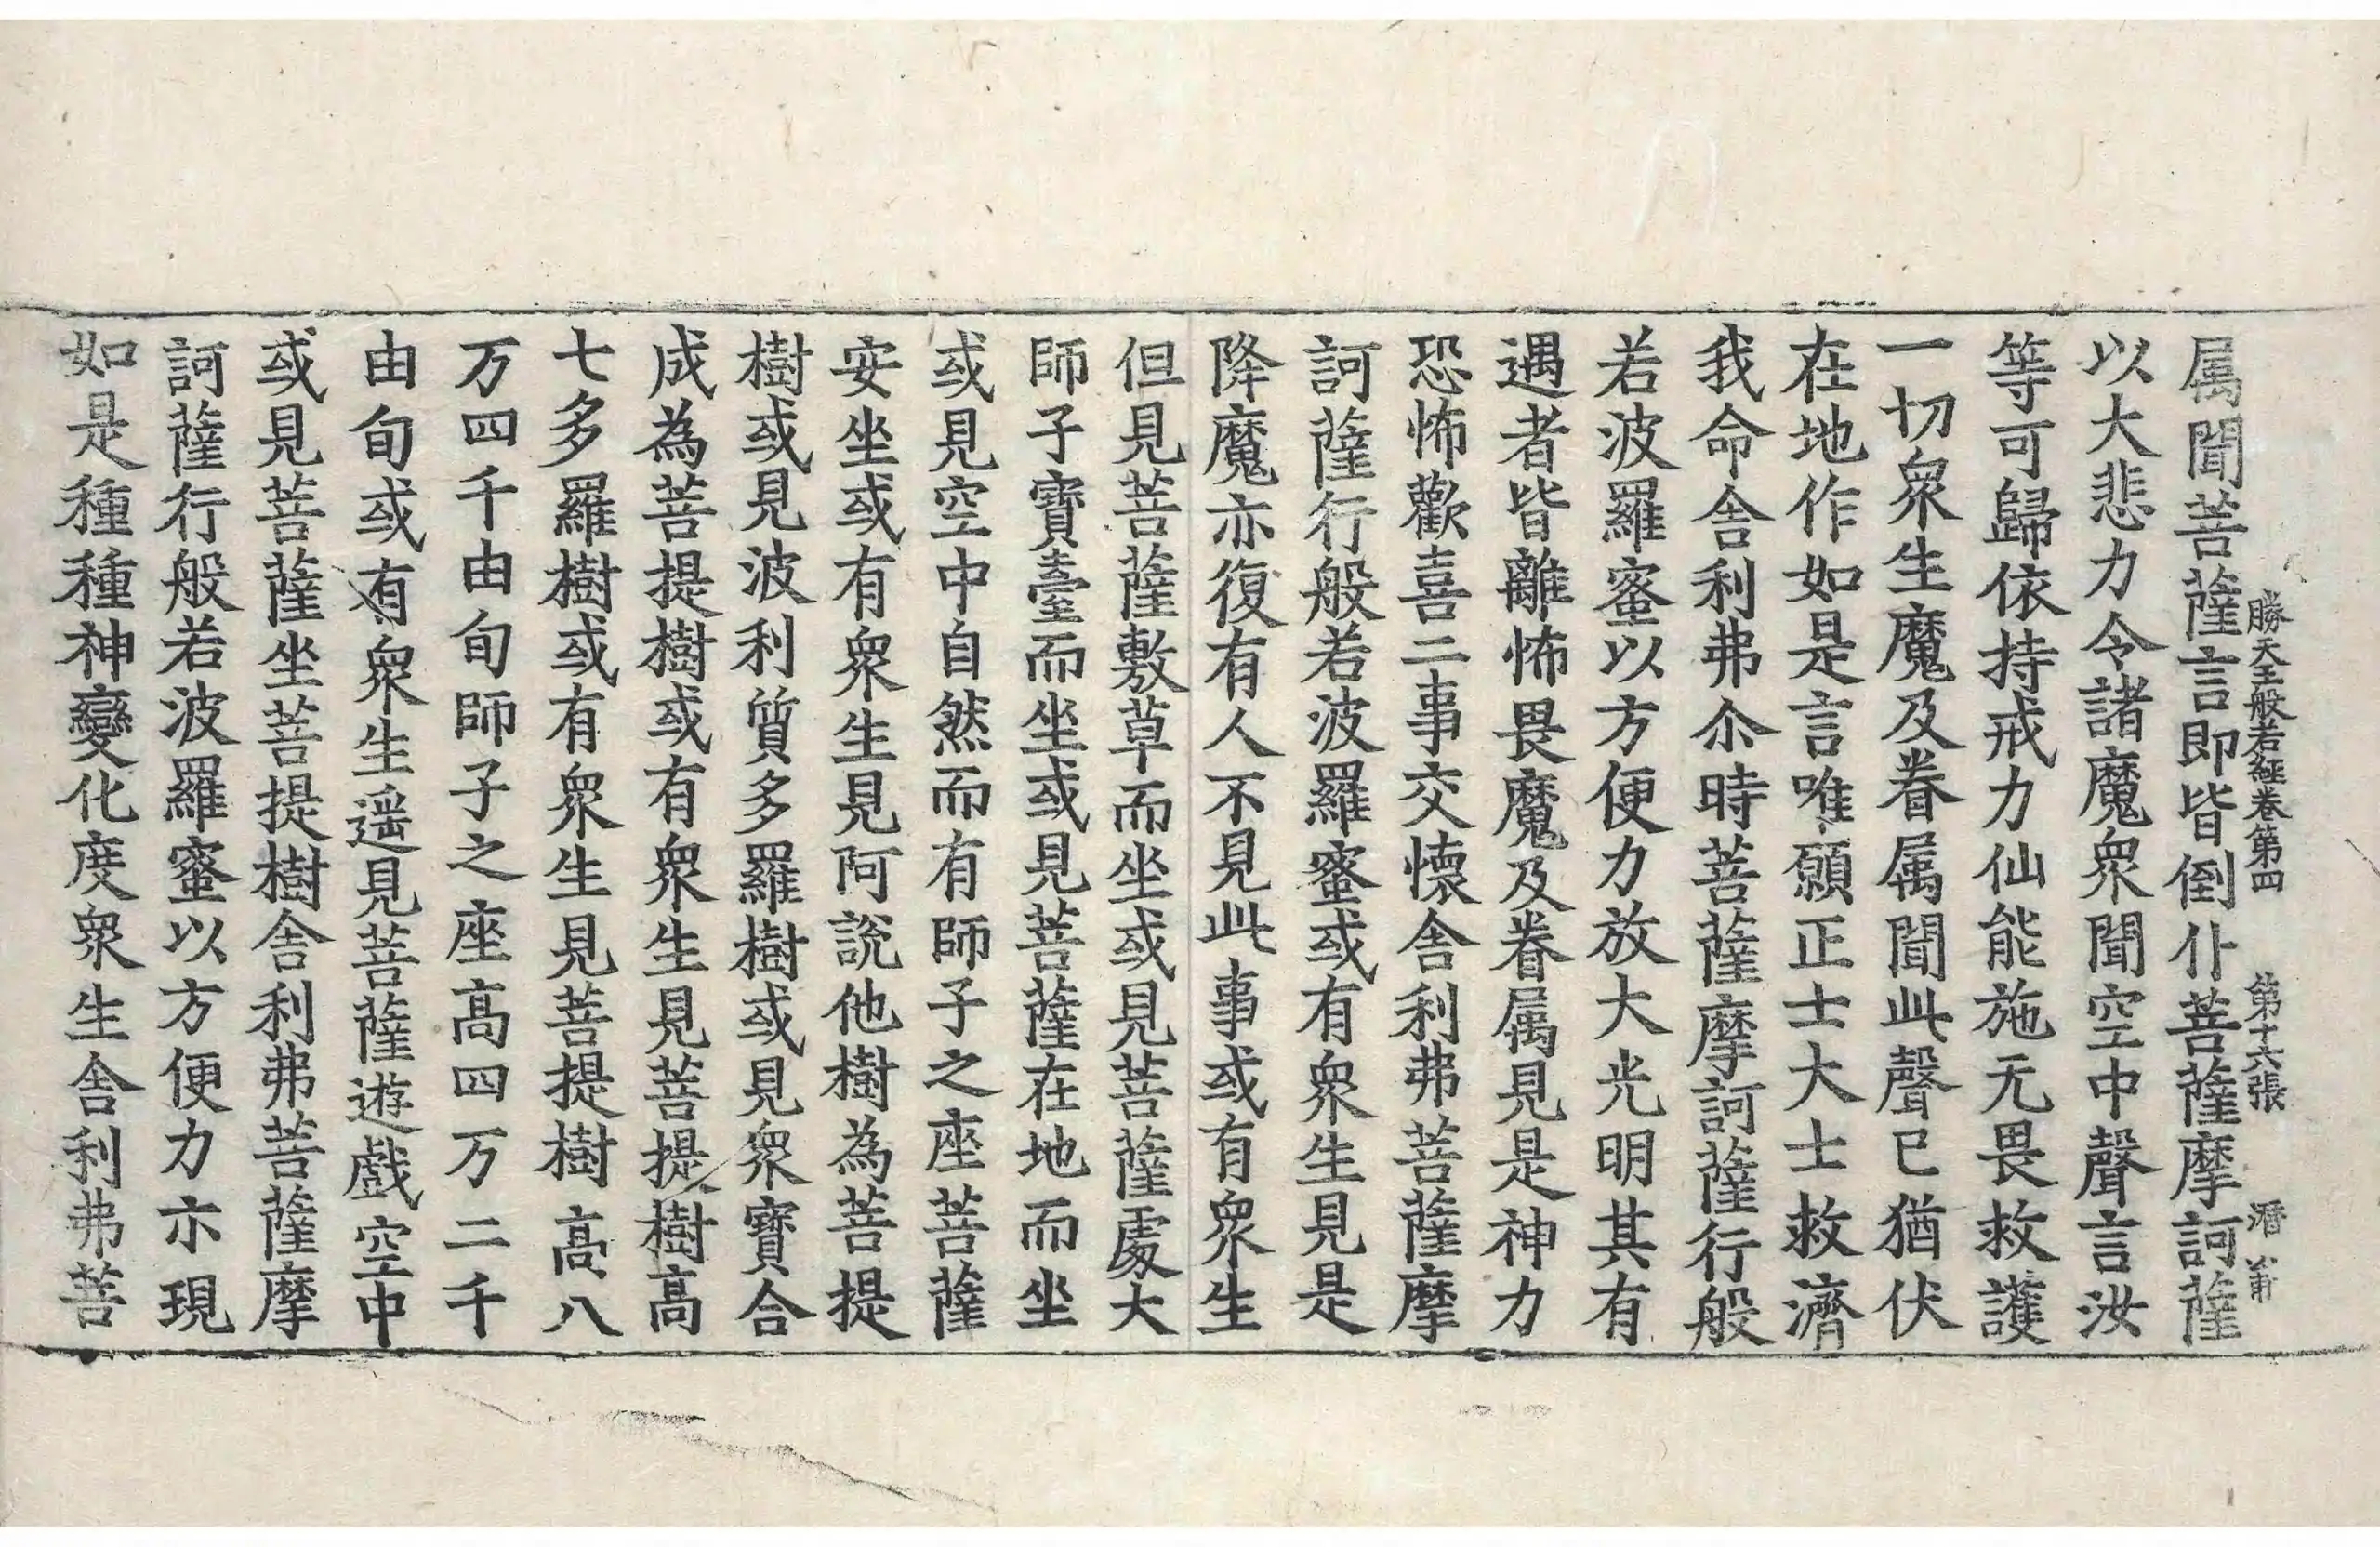 勝天王般若經卷第四 第十六張 潛
属聞菩薩言即皆倒仆菩薩摩訶薩
以大悲力令諸魔衆聞空中聲言汝
等可歸依持戒力仙能施无畏救護
一切衆生魔及眷属聞此聲已猶伏
在地作如是言唯願正士大士救濟
我命舍利弗尒時菩薩摩訶薩行般
若波羅蜜以方便力放大光明其有
遇者皆離怖畏魔及眷属見是神力
恐怖歡喜二事交懷舍利弗菩薩摩
訶薩行般若波羅蜜或有衆生見是
降魔亦復有人不見此事或有衆生
但見菩薩敷草而坐或見菩薩處大
師子寶臺而坐或見菩薩在地而坐
或見空中自然而有師子之座菩薩
安坐或有衆生見阿說他樹為菩提
樹或見波利質多羅樹或見衆寶合
成為菩提樹或有衆生見菩提樹高
七多羅樹或有衆生見菩提樹高八
万四千由旬師子之座高四万二千
由旬或有衆生遥見菩薩遊戲空中
或見菩薩坐菩提樹舍利弗菩薩摩
訶薩行般若波羅蜜以方便力亦現
如是種種神變化度衆生舍利弗菩